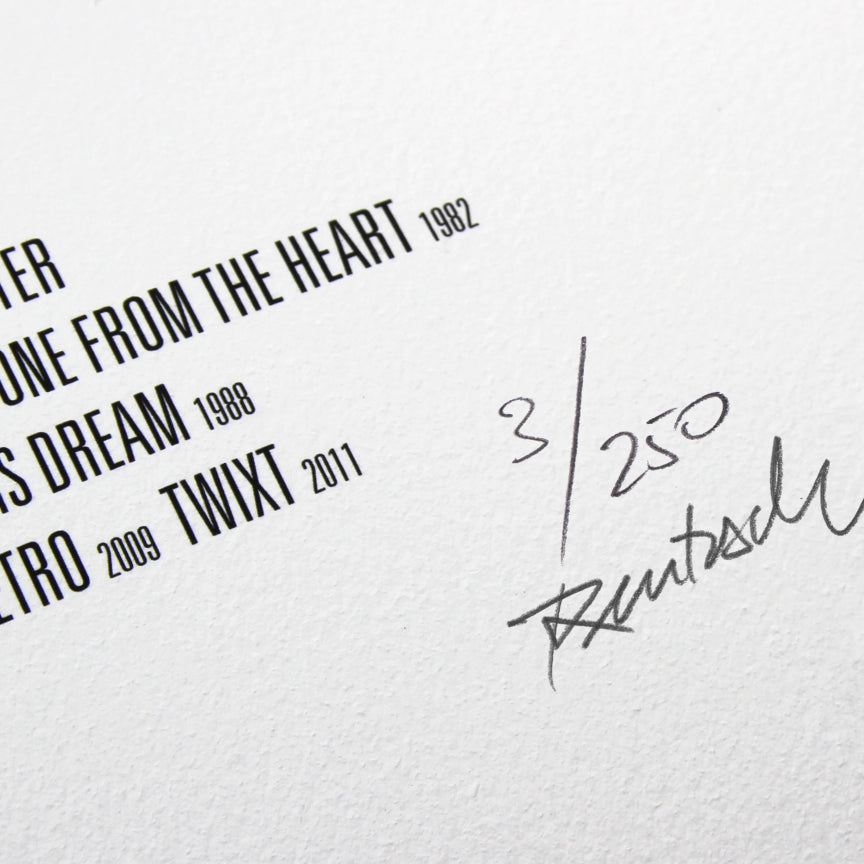 TER
ONE FROM THE HEART 1982
IS DREAM 1988
ETRO 2009 TWIXT 2011
3/250